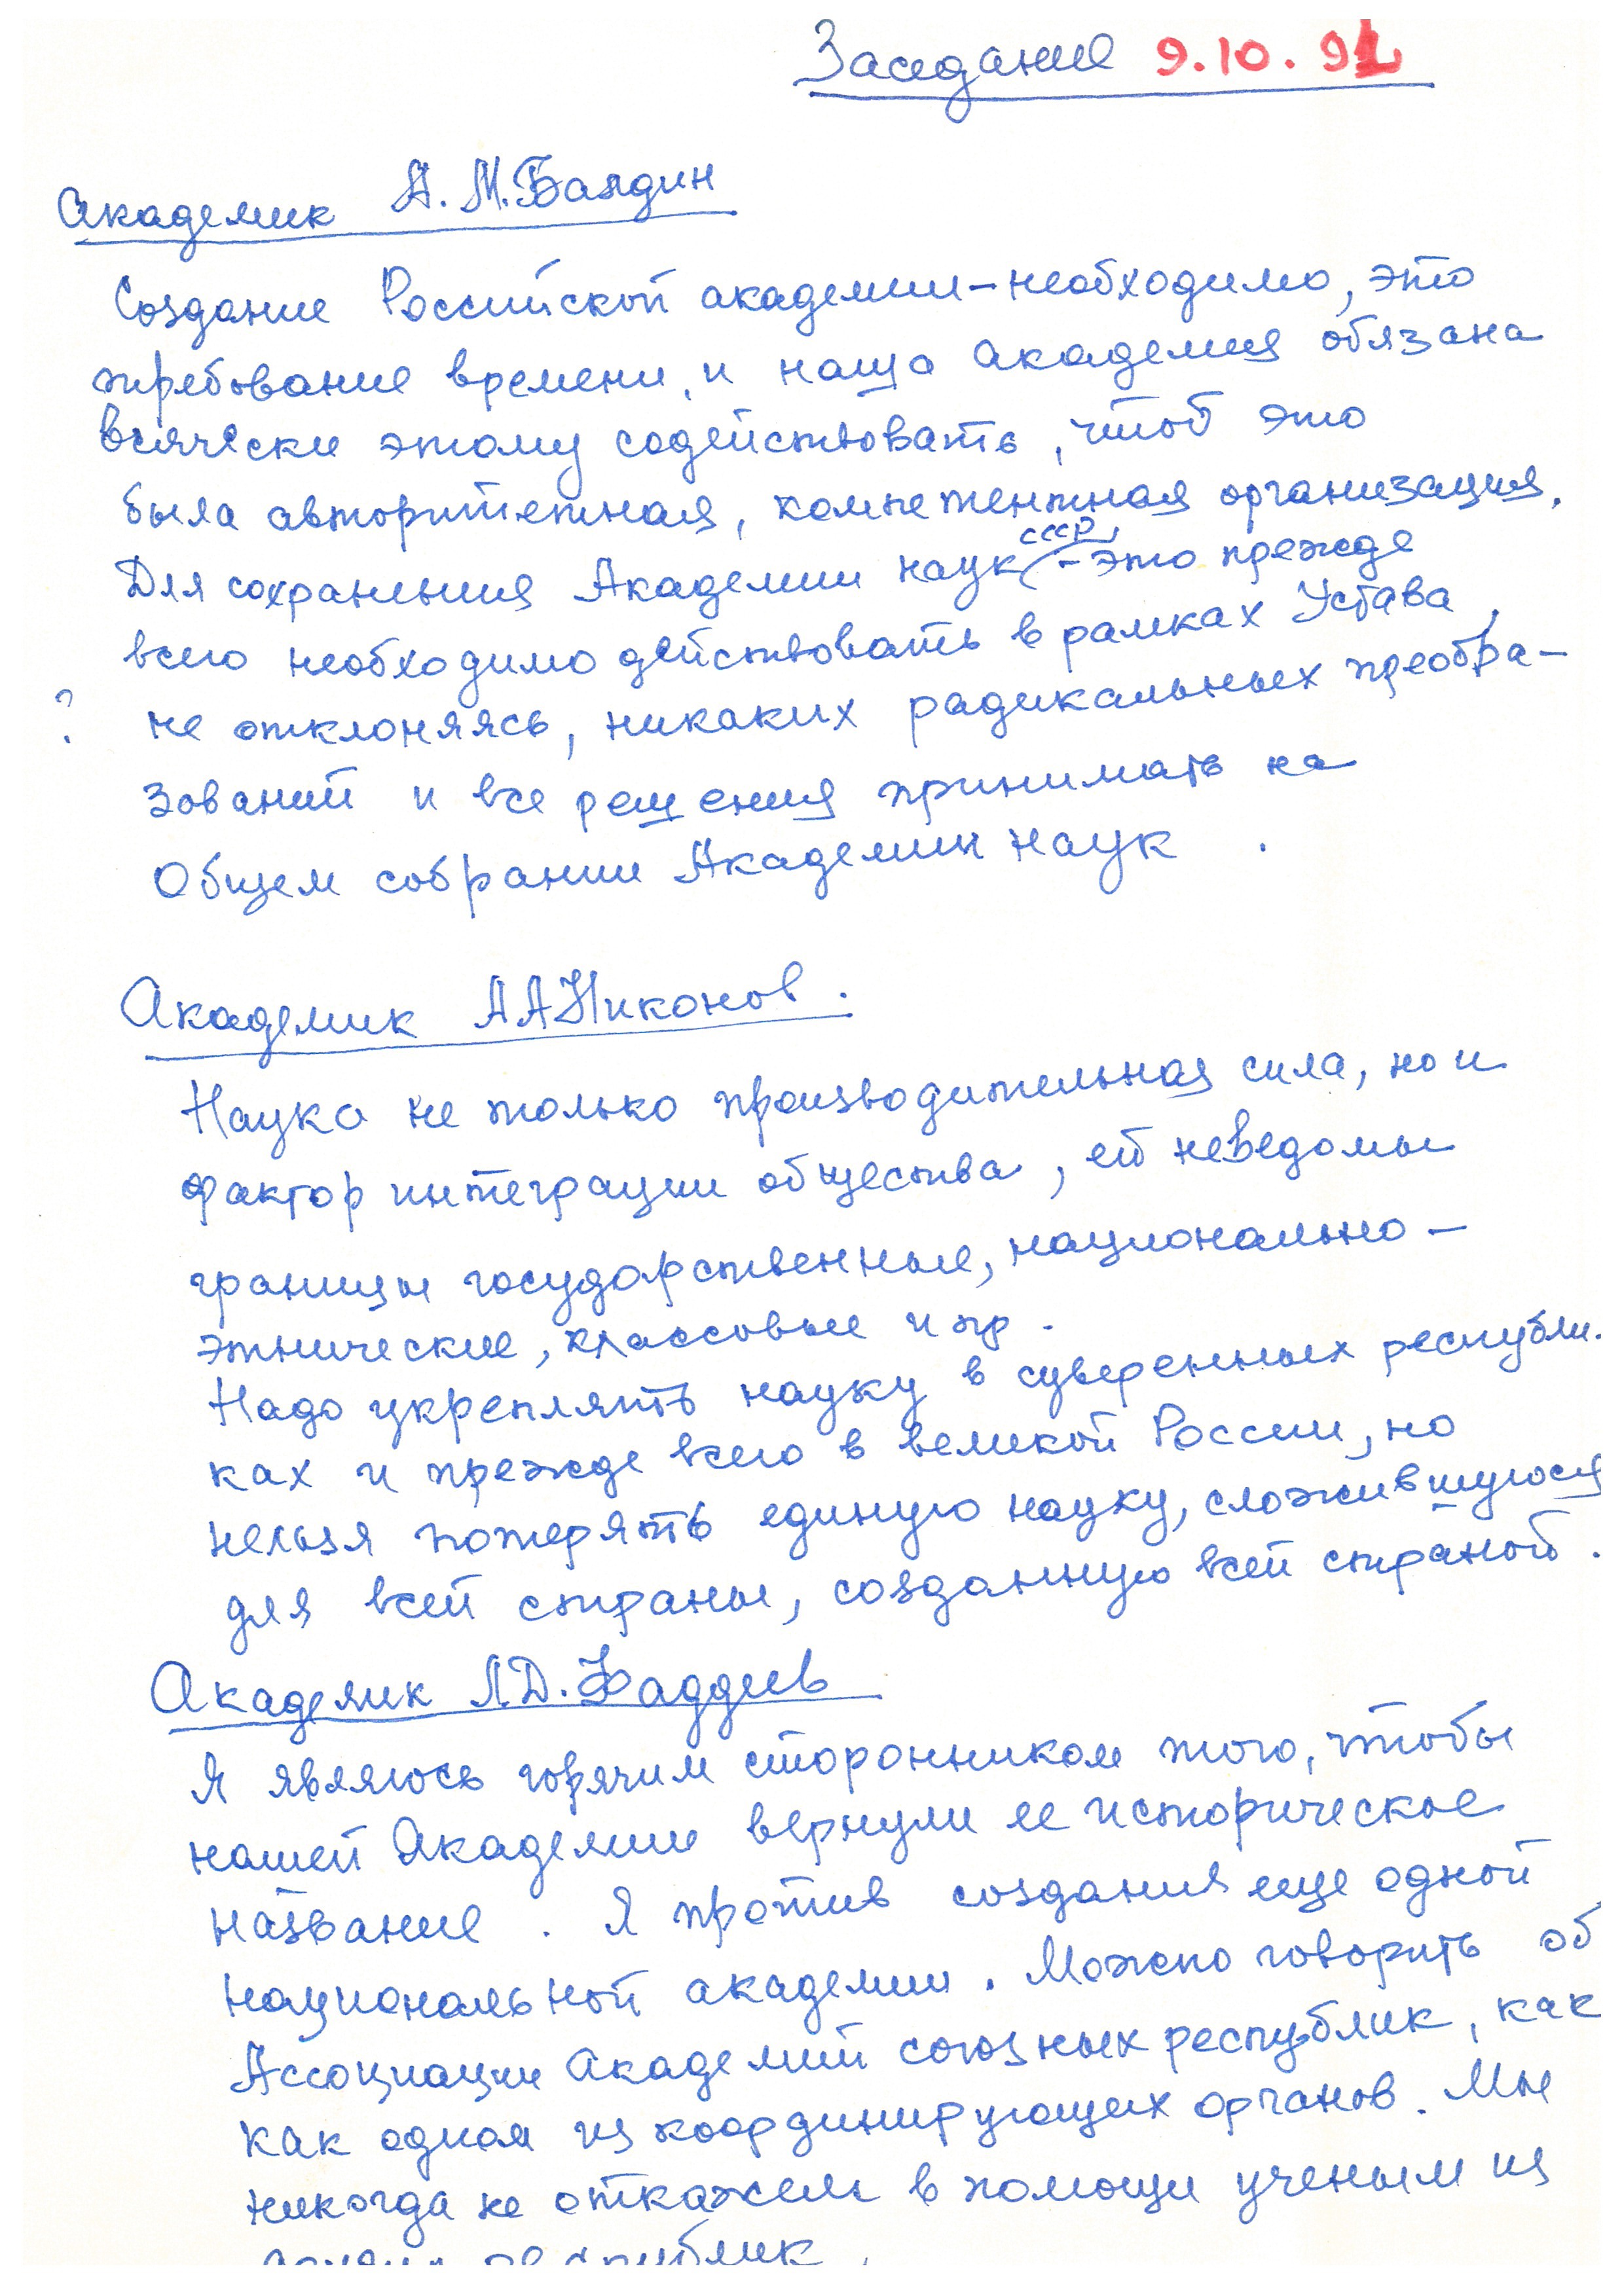 Заседание 9.10.91
Академик А.М.Балдин
Создание Российской академии – необходимо, это
требование времени, и наша академия обязана
всячески этому содействовать, чтоб это
была авторитетная, компетентная организация.
Для сохранения Академии наук СССР, – это прежде
всего необходимо действовать в рамках Устава,
? не отклоняясь, никаких радикальных преобра-
зований и все решения принимать на
Общем собрании Академии наук .
Академик А А Никонов .
Наука не только производительная сила, но и
фактор интеграции общества, ей неведомы
границы государственные, национально-
этнические, классовые и пр.
Надо укреплять науку в суверенных республи-
ках и прежде всего в великой России, но
нельзя потерять единую науку, сложившуюся
для всей страны, созданную всей страной.
Академик Л.Д. Фаддеев
Я являюсь горячим сторонником того, чтобы
нашей Академии вернули ее историческое
название . Я против создания еще одной
национальной академии. Можно говорить об
Ассоциации академий союзных республик, как
как одном из координирующих органов. Мы
никогда не откажем в помощи ученым из
республик.